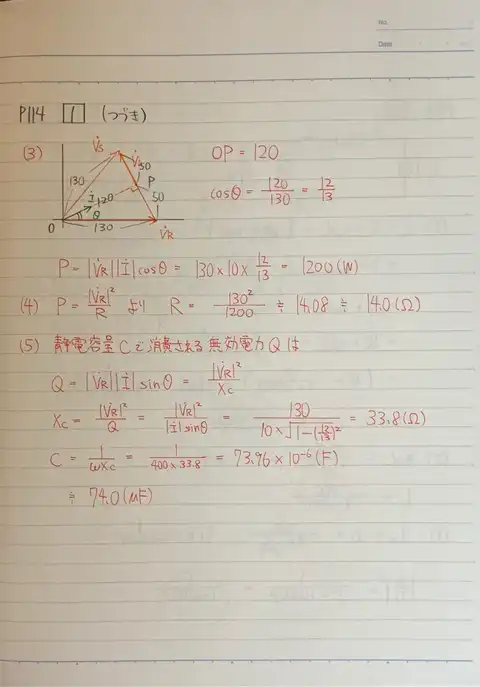 No.
Date
P114 1 (つづき)
(3)
V̇s
130
V̇
50
P
50
İ
120
θ
O
130
V̇R
OP = 120
cosθ = 120/130 = 12/13
P = |V̇R||İ|cosθ = 130×10×12/13 = 1200(W)
(4) P = |V̇R|²/R より R = 130²/1200 ≒ 14.08 ≒ 14.0(Ω)
(5) 静電容量Cで消費される無効電力Qは
Q = |V̇R||İ|sinθ = |V̇R|²/Xc
Xc = |V̇R|²/Q = |V̇R|²/|İ|sinθ = 130/10×√1-(12/13)² = 33.8(Ω)
C = 1/ωXc = 1/400×33.8 = 73.96×10⁻⁶(F)
≒ 74.0(μF)